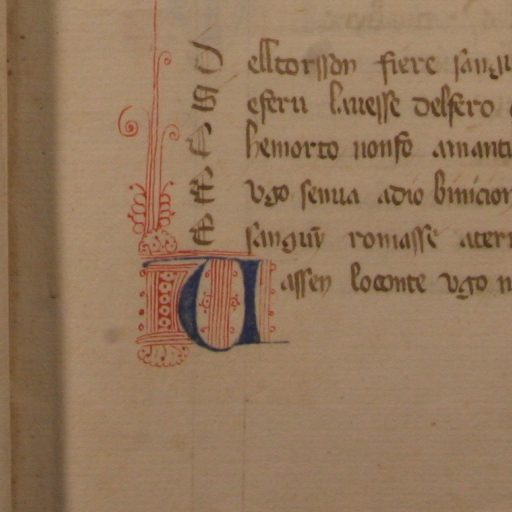 D ellcorssdn fiere sangu
S eferu lauesse delfero
C hemorto nonfo amanti
E vgo senua adio binicion
E sanguiȷ romasse aterr
Vassen loconte vgo n